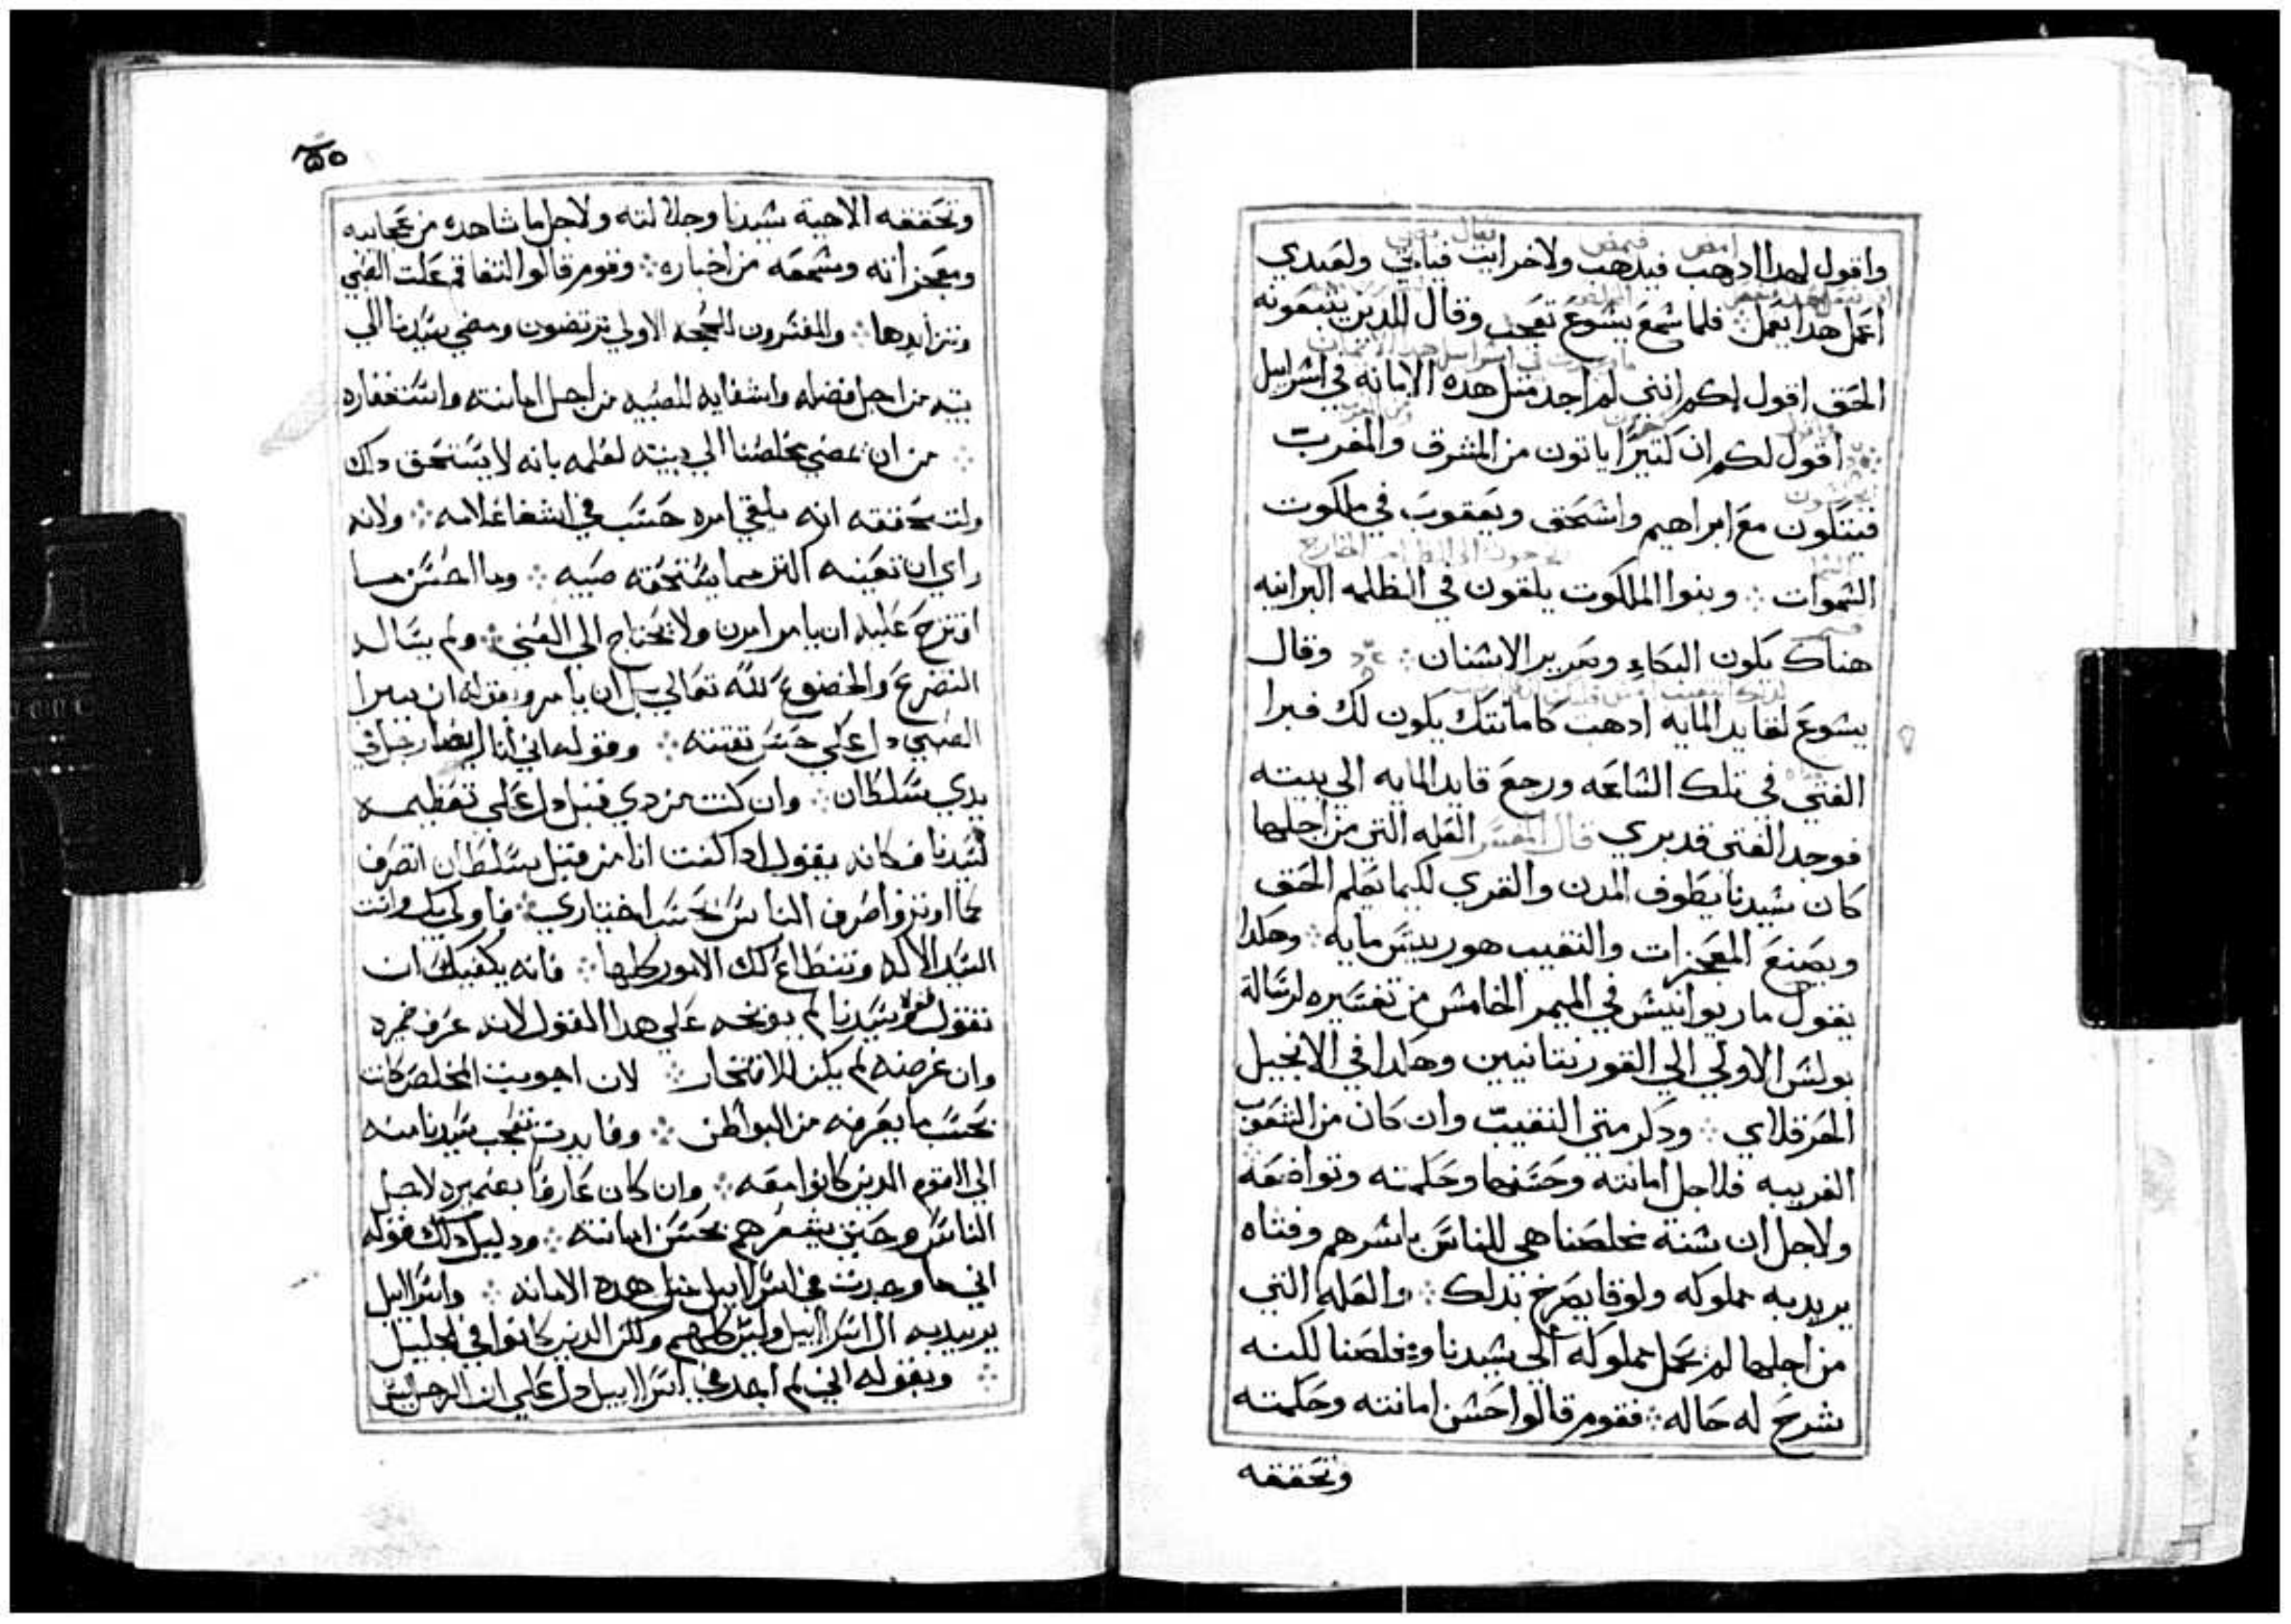 واقول لهدا ادهب فيدهب ولاخر ايت فياتي ولعبدي
اعمل هدا يعمل فلما سمع يسوع تعجب وقال للدين يتبعونه
الحق اقول لكم انني لم اجد متل هده الامانه في اسرايل
اقول لكم ان كتيرا ياتون من المشرق والمغرب
فيتكون مع ابراهيم واسحق ويعقوب في ملكوت
السموات وبنوا الملكوت يلقون في الظلمه البرانيه
هناك يكون البكاء وصرير الاسنان وقال
يسوع لقايد المايه ادهب كامانتك يكون لك فبرا
الفتى في تلك الساعه ورجع قايد المايه الي بيته
فوجد الفتى قد بري قال المفسر العله التي من اجلها
كان سيدنا يطوف المدن والقري لكيما يعلم الحق
ويصنع المعجزات والنقيب هو رييس مايه وهكدا
يقول ماريوانيس في الميمر الخامس من تفسيره لرسالة
بولس الاولي الي القورنتانيين وهكدا في الانجيل
الحرقلاي ودكر متي النقيب وان كان من الشعوب
الغريبه فلاجل امانته وحسنها وحكمته وتواضعه
ولاجل ان سنة مخلصنا هي للناس باسرهم وفتاه
يريد به مملوكه ولوقا يصرخ بدلك والعله التي
من اجلها لم يحمل مملوكه الي سيدنا ومخلصنا لكنه
شرح له حاله فقوم قالوا حسن امانته وحكمته
وتحققه
٢٥٠
وتحققه الاهية سيدنا وجلالته ولاجل ما شاهده من عجايبه
ومعجزاته وسمعه من اخباره وقوم قالوا لتفاقم علت الفتي
وتزايدها والمفسرون للحجه الاولي يرتضون ومضي سيدنا الي
بيته من اجل فضله واشفايه للصبيه من اجل امانته واستغفاره
من ان يمضي مخلصنا الي بيته لعلمه بانه لا يستحق دلك
ولتحققه انه يلقي امره حسب في اشفا غلامه ولانه
راي ان تعينه اكتر مما يستحقه صبيه وما احسن مسا
اقترح عليه ان يامر امرن ولا يحتاج الي المضي ولم يساله
التضرع والخضوع لله تعالي بل ان يامر وبقوله ان يبرا
الصبي دل علي حسن تقيته وقوله اني انا ايضا رجل في
يدي سلطان وان كنت من دي قبل دل علي تعظيمه
لسيدنا فكانه يقول ادا كنت انا من قبل سلطان اتصرف
بما اوتر واصرف الناس بحسب اختياري فاولي بك وانت
السيد الاله وتنطاع لك الامور كلها فانه يكفيك ان
تقول قولا سيدنا لم يوبخه علي هدا القول لانه عرف ضميره
وان غرضه لم يكن للافتخار لان اجوبت المخلص كانت
بحسب ما يعرفه من البواطن وفايدت تعجب سيدنا منه
الي القوم الدين كانوا معه وان كان عارفا بضميره لاجل
الناس وحتى يشعرهم بحسن امانته ودليل دلك قوله
اني ما وجدت في اسرايل متل هده الامانه واسرايل
يريد به ال اسرايل وليس كلهم ولكن الدين كانوا في الجليل
وبقوله اني لم اجد في اسرايل دل علي ان الرجل ليس